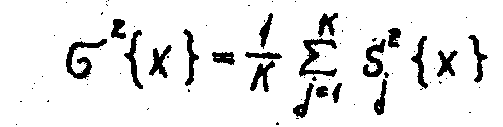 σ²{x} = 1/K ∑_{j=1}^{K} S_j²{x}